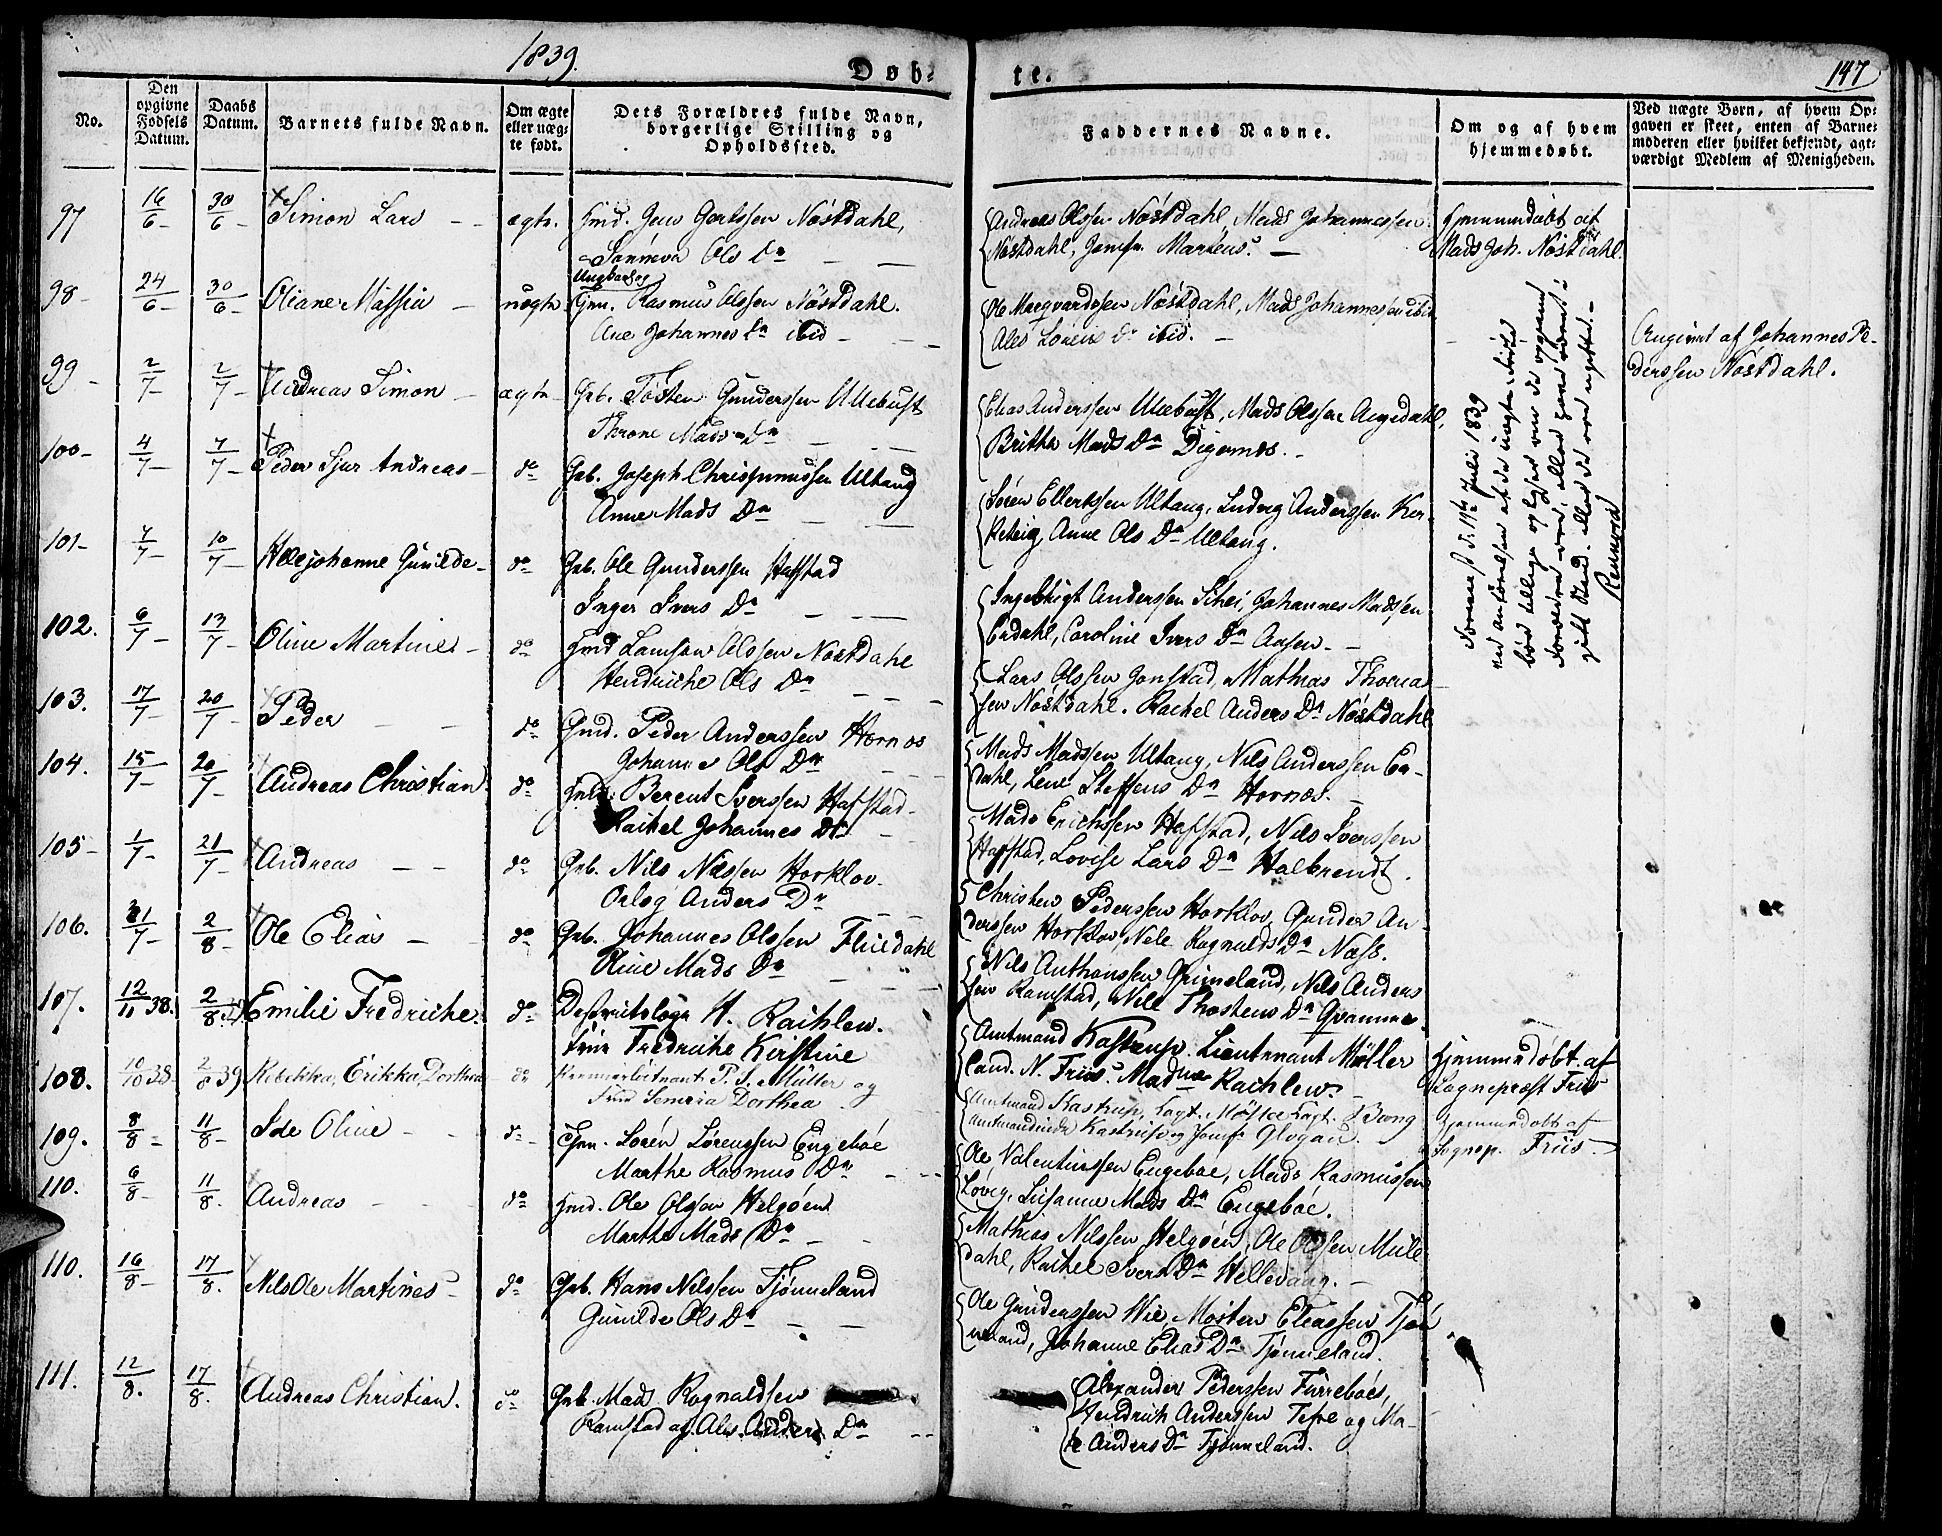 1839.
Døb-
te.
147
No.
Den opgivne Fødsels Datum.
Daabs Datum.
Barnets fulde Navn.
Om ægte eller uægte født.
Dets Forældres fulde Navn, borgerlige Stilling og Opholdssted.
Faddernes Navne.
Om og af hvem hjemmedøbt.
Ved uægte Børn, af hvem Opgaven er skeet, enten af Barnemoderen eller hvilket bekjendt, agtværdigt Medlem af Menigheden.
97 16/6 30/6 Simon Lars ægte. Gmd. Jens Gertssen Nøstdahl,
Sønneva Ols Dr
Andreas Olssen Nøstdahl, Mads Johannessen
Nøstdahl, Jomfr. Martens.
Hjemmedøbt af
Mads Joh. Nøstdahl.
98 24/6 30/6 Oliane Massia uægte Ungkarl og Gm. Rasmus Olssen Nøstdahl.
Ane Johannes Dr ibid
Ole Marqvardssen Nøstdahl, Mads Johannessen ibid
Ales Sørens Dr ibid.
Angivet af Johannes Pe-
derssen Nøstdahl.
99 2/7 2/7 Andreas Simon ægte Gb. Tosten Gunderssen Ullebust
Throne Mads Dr
Elias Anderssen Ullebust, Mads Olssen Angedahl,
Britha Mads Dr Digernes.
100 4/7 7/7 Peder Sjur Andreas do Gb. Joseph Chrispinussen Ultang
Anne Mads Dr
Søren Ellertssen Ultang, Ludvig Anderssen
Anne Ols Dr Ultang.
101 7/7 10/7 Nelejohanne Gunilde do Gb. Ole Gunderssen Hafstad
Inger Ivers Dr
Ingebrigt Anderssen Schei, Johannes Madssen
Erdahl, Caroline Ivers Dr Aasen.
102. 6/7 13/7 Oline Martine do Gmd Samson Olssen Nøstdahl
Hendriche Ols Dr
Lars Olssen Jonstad, Mathias Thomas-
sen Nøstdahl. Rachel Anders Dr Nøstdahl
103. 17/7 20/7 Peder do Gmd. Peder Anderssen Hornes
Johanne Ols Dr
Mads Madssen Ultang, Nils Anderssen Er-
dahl, Lene Steffens Dr Hornes.
104. 15/7 20/7 Andreas Christian do Gmd. Berent Iverssen Hafstad
Rachel Johannes Dr
Mads Erichssen Hafstad, Nils Iverssen
Hafstad, Lovise Lars Dr Halbrendt.
105 1/7 21/7 Andreas do Gb. Nils Nilssen Horklov.
Orlog Anders Dr
Christen Pederssen Horklov, Gunder An-
derssen Horklov, Nele Ragnalds Dr Næss.
106. 31/7 2/8 Ole Elias do Gb. Johannes Olssen Fluedahl
Oline Mads Dr
Nils Anthonssen Grimeland, Nils Anders
sen Ramstad, Nele Thostens Dr Qvamme
107. 12/11 38. 2/8 Emilie Fredriche do Destrictslæge H. Rachlew.
Frue Fredriche Kirstine
Amtmand Kastrup. Lieutenant Müller
Cand. N. Friis. Madme Rachlew
Hjemmedøbt af
Sognepræst Friis
108. 10/10 38 2/8 39 Rebekka, Erikka, Dorthea do Premierleitnant P. S. Müller og
Frue Semeia Dorthea
Amtmand Kastrup, Fogt
Amtmandinde Kastrup og Jomfr
Hjemmedøbt af
Sognep. Friis
109. 8/8 11/8 Ide Oline do Gm. Søren Sørenssen Engebøe
Marthe Rasmus Dr
Ole Valentinssen Engebøe, Mads Rasmussen
Løvig, Susanne Mads Dr Engebøe.
110. 6/8 11/8. Andreas do Gmd. Ole Olssen Helgøen
Marthe Mads Dr
Mathias Nilssen Helgøen, Ole Olssen Mule-
dahl, Rachel Ivers Dr Hellevang.
110. 16/8 17/8. Nils Ole Martines do Gb. Hans Nilssen Tjønneland
Gunilde Ols Dr
Ole Gunderssen Wie, Mosten Eleassen Tjøn
neland, Johanne Elias Dr Tjønneland.
111. 12/8. 17/8. Andreas Christian. do Gb. Mads Ragnaldsen
Ramstad og Ales. Anders Dr
Alexander Pederssen Furrebøe,
Hendrich Anderssen Tefre og Ma-
Anders Dr Tjønneland.
11te Juli 1839
Rennord